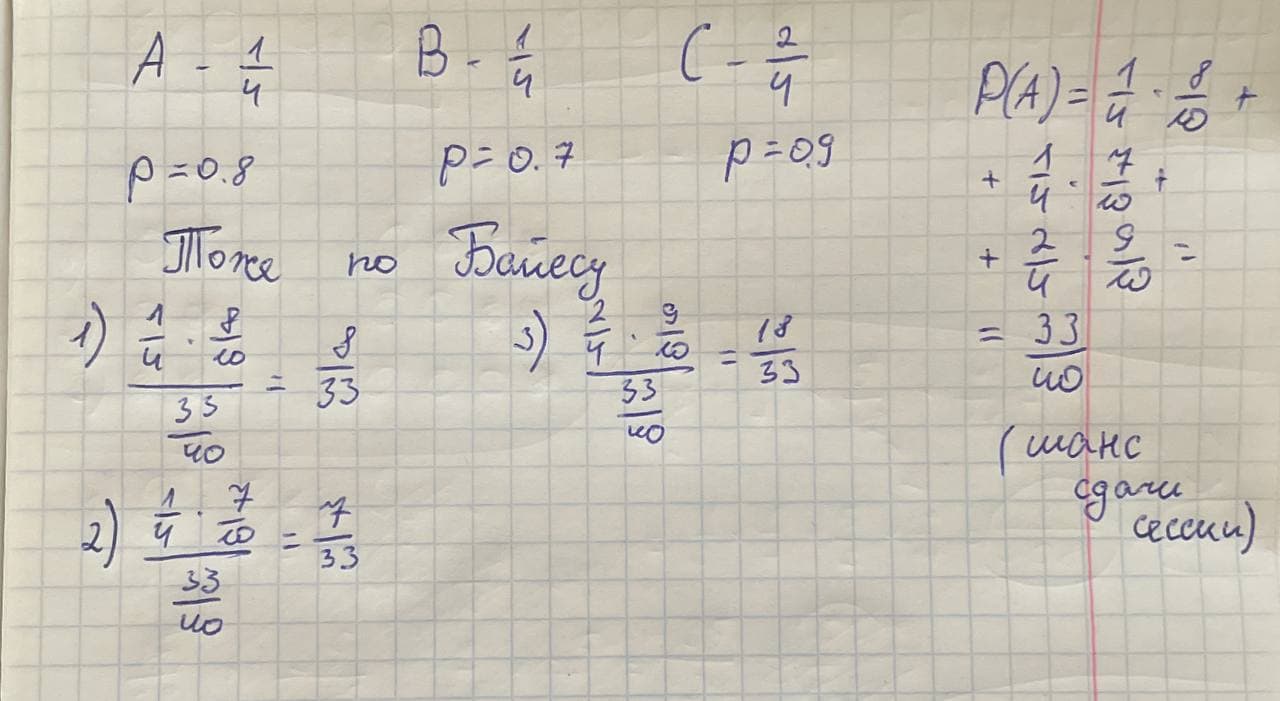 A - 1/4 B - 1/4 C - 2/4
p = 0.8 p = 0.7 p = 0.9
Тоже по Байесу
1) (1/4 · 8/10) / (33/40) = 8/33
2) (1/4 · 7/10) / (33/40) = 7/33
3) (2/4 · 9/10) / (33/40) = 18/33
P(A) = 1/4 · 8/10 +
+ 1/4 · 7/10 +
+ 2/4 · 9/10 =
= 33/40
(шанс
сдачи
сессии)